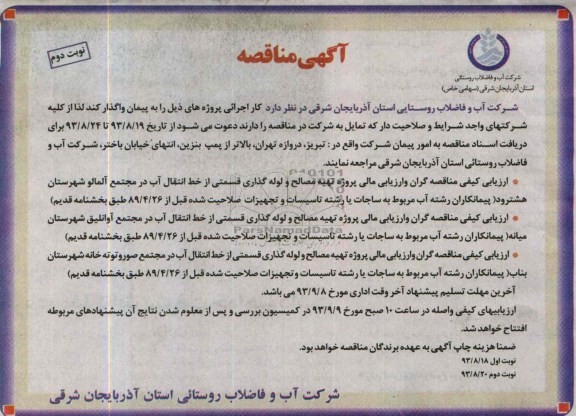 آگهی مناقصه
نوبت دوم
شرکت آب و فاضلاب روستائی
استان آذربایجان شرقی (سهامی خاص)
شرکت آب و فاضلاب روستایی استان آذربایجان شرقی در نظر دارد کار اجرائی پروژه های ذیل را به پیمان واگذار کند لذا از کلیه
شرکتهای واجد شرایط و صلاحیت دار که تمایل به شرکت در مناقصه را دارند دعوت می شود از تاریخ ۹۳/۸/۱۹ تا ۹۳/۸/۲۴ برای
دریافت اسناد مناقصه به امور پیمان شرکت واقع در : تبریز، دروازه تهران، بالاتر از پمپ بنزین، انتهای خیابان باختر، شرکت آب و
فاضلاب روستائی استان آذربایجان شرقی مراجعه نمایند.
• ارزیابی کیفی مناقصه گران وارزیابی مالی پروژه تهیه مصالح و لوله گذاری قسمتی از خط انتقال آب در مجتمع آلمالو شهرستان
هشترود( پیمانکاران رشته آب مربوط به ساجات یا رشته تاسیسات و تجهیزات صلاحیت شده قبل از ۸۹/۴/۲۶ طبق بخشنامه قدیم)
• ارزیابی کیفی مناقصه گران وارزیابی مالی پروژه تهیه مصالح و لوله گذاری قسمتی از خط انتقال آب در مجتمع آوانلیق شهرستان
میانه( پیمانکاران رشته آب مربوط به ساجات یا رشته تاسیسات و تجهیزات صلاحیت شده قبل از ۸۹/۴/۲۶ طبق بخشنامه قدیم)
• ارزیابی کیفی مناقصه گران وارزیابی مالی پروژه تهیه مصالح و لوله گذاری قسمتی از خط انتقال آب در مجتمع صور و توته خانه شهرستان
بناب( پیمانکاران رشته آب مربوط به ساجات یا رشته تاسیسات و تجهیزات صلاحیت شده قبل از ۸۹/۴/۲۶ طبق بخشنامه قدیم)
آخرین مهلت تسلیم پیشنهاد آخر وقت اداری مورخ ۹۳/۹/۸ می باشد.
ارزیابیهای کیفی واصله در ساعت ۱۰ صبح مورخ ۹۳/۹/۹ در کمیسیون بررسی و پس از معلوم شدن نتایج آن پیشنهادهای مربوطه
افتتاح خواهد شد.
ضمنا هزینه چاپ آگهی به عهده برندگان مناقصه خواهد بود.
نوبت اول ۹۳/۸/۱۸
نوبت دوم ۹۳/۸/۲۰
شرکت آب و فاضلاب روستائی استان آذربایجان شرقی
ParsNamadData